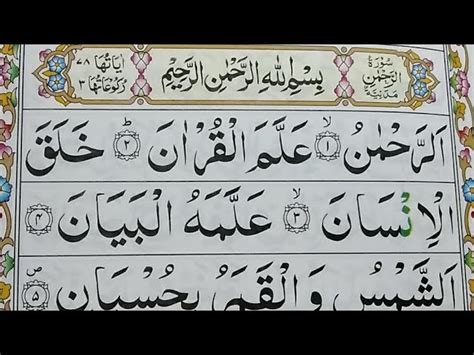 سُوْرَةُ الرَّحْمٰنِ مَدَنِيَّةٌ
بِسْمِ اللهِ الرَّحْمٰنِ الرَّحِيْمِ
اٰيَاتُهَا ٧٨ رُكُوْعَاتُهَا ٣
اَلرَّحْمٰنُ ۙ﴿١﴾ عَلَّمَ الْقُرْاٰنَ ؕ﴿٢﴾ خَلَقَ
الْاِنْسَانَ ۙ﴿٣﴾ عَلَّمَهُ الْبَيَانَ ﴿٤﴾
اَلشَّمْسُ وَالْقَمَرُ بِحُسْبَانٍ ۪ص﴿٥﴾